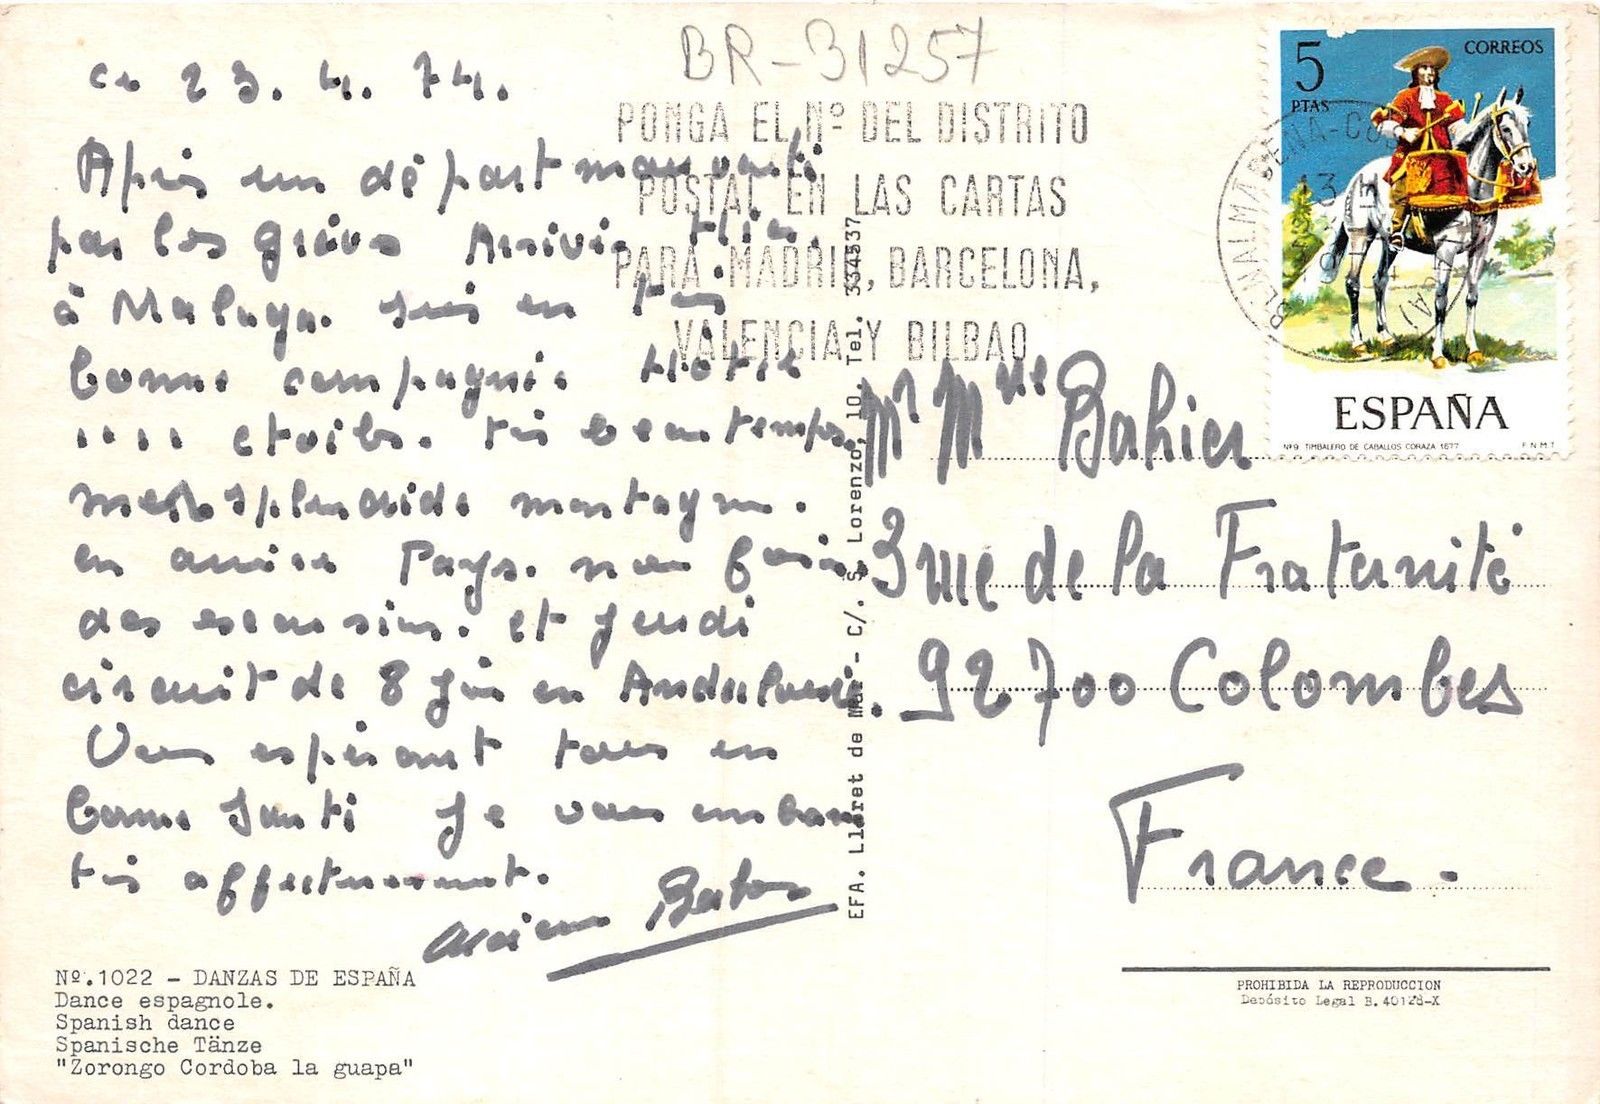 BR-31257
PONGA EL Nº DEL DISTRITO
POSTAL EN LAS CARTAS
PARA MADRID, BARCELONA,
VALENCIA Y BILBAO
5
PTAS
CORREOS
ESPAÑA
Nº9 TIMBALERO DE CABALLOS CORAZA 1677
F.N.M.T
BENALMADENA-COS
13
ce 23.4.74.
Après un départ
par les grèves Arrivée Hier.
à Malaga. suis en très
bonne compagnie Hôtel
ıııı étoiles. très beau temps.
mer splendide montagne.
en arrière Pays. nous faisons
des excursions. et jeudi
circuit de 8 jours en Andalousie.
Vous espérant tous en
bonne santé je vous embrasse
très affectueusement.
EFA. Lloret de Mar - C/. S. Lorenzo, 10. Tel. 334537
Mr Mme Bahier
3 rue de la Fraternité
92700 Colombes
France.
Nº.1022 - DANZAS DE ESPAÑA
Dance espagnole.
Spanish dance
Spanische Tänze
"Zorongo Cordoba la guapa"
PROHIBIDA LA REPRODUCCION
Depósito Legal B. 40128-X